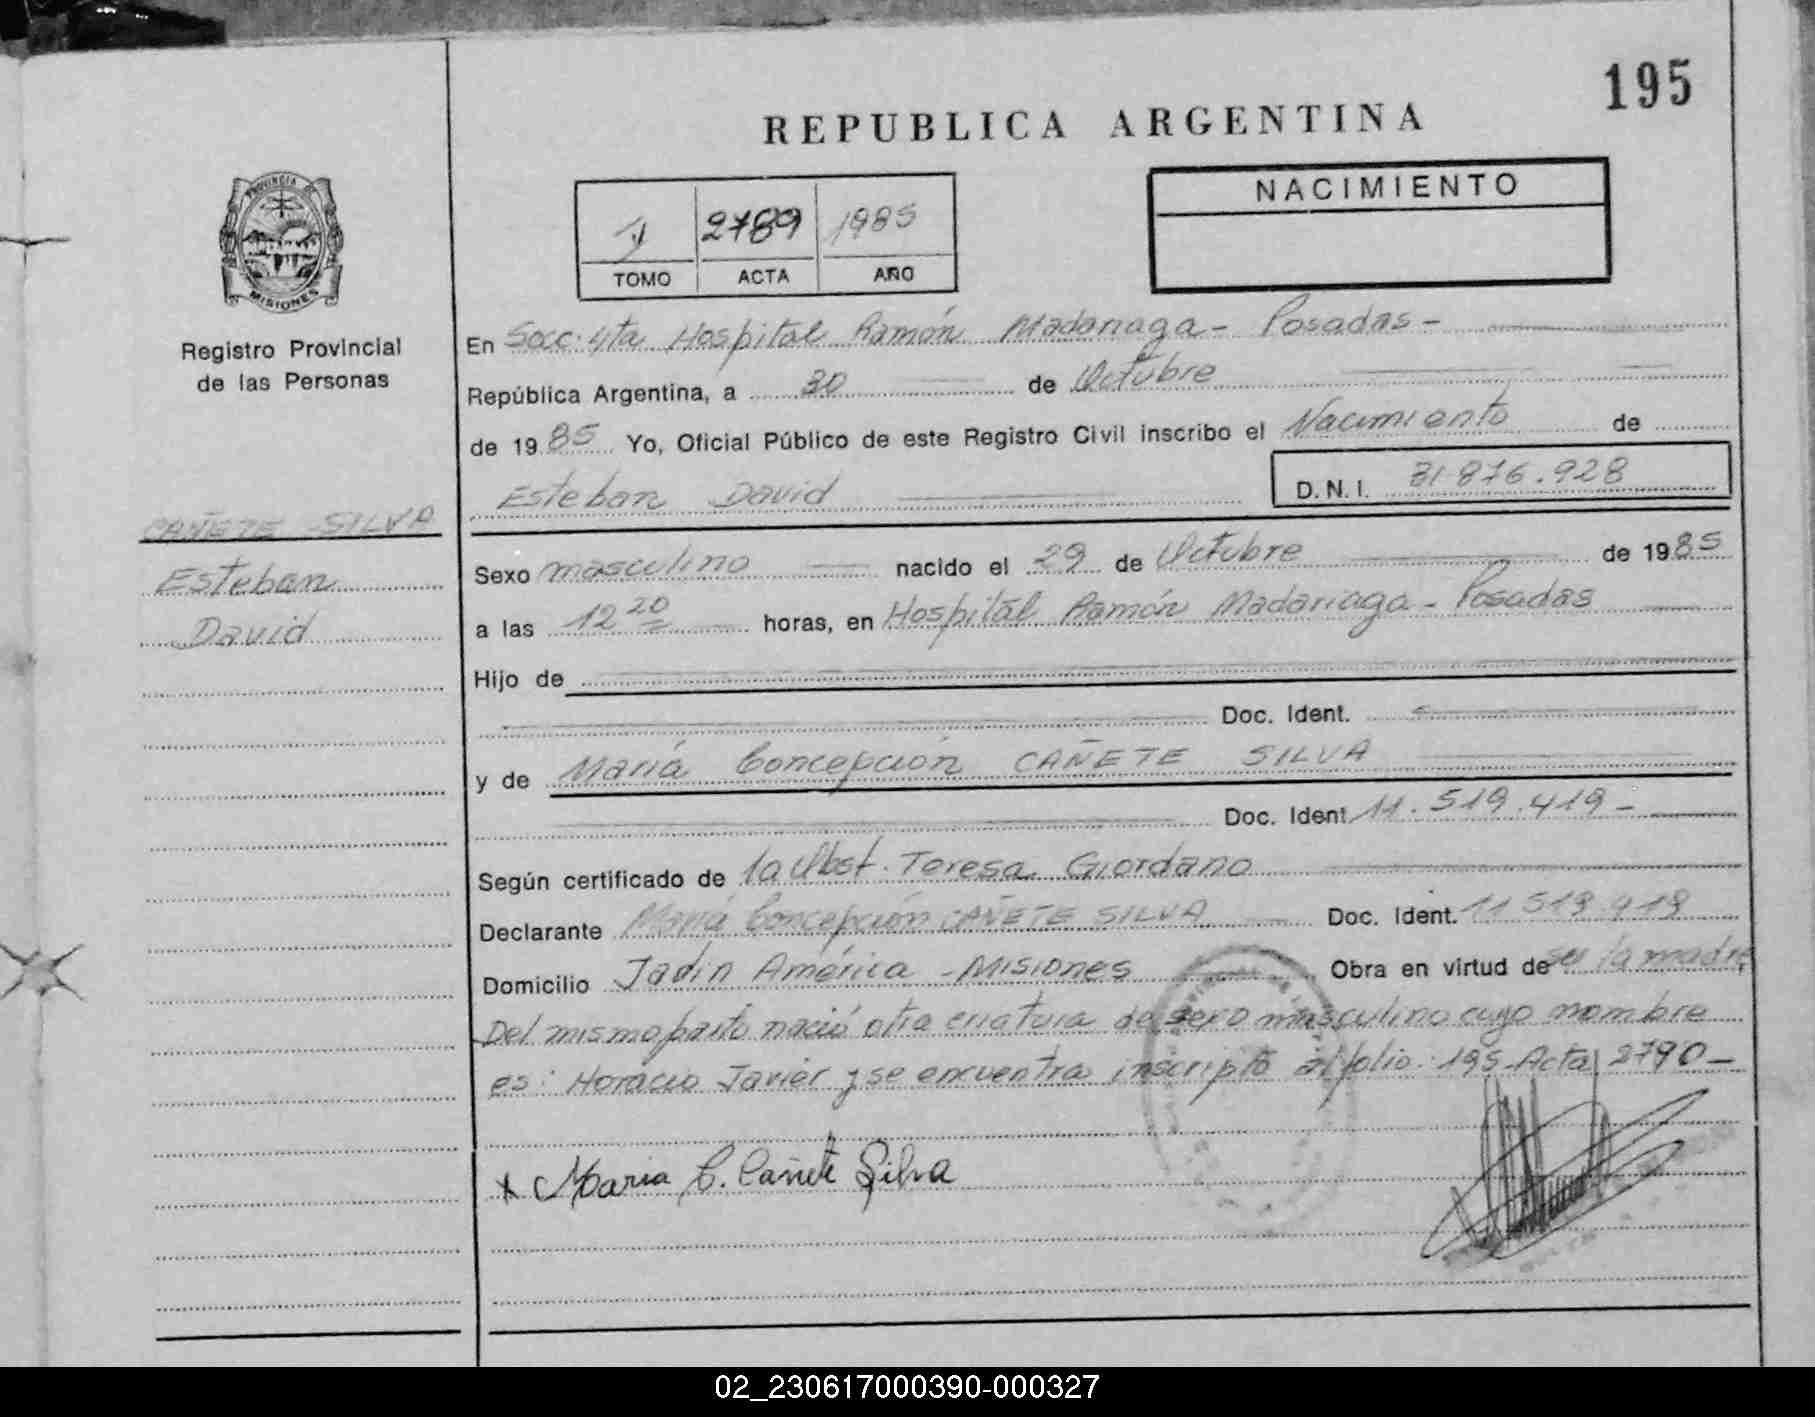 195
REPUBLICA ARGENTINA
PROVINCIA DE
MISIONES
Registro Provincial
de las Personas
2789 1985
TOMO ACTA AÑO
NACIMIENTO
En Secc. 4ta Hospital Ramón Madariaga - Posadas -
República Argentina, a 30 de Octubre
de 1985 Yo, Oficial Público de este Registro Civil inscribo el Nacimiento de
Esteban David D.N.I. 31.876.928
CAÑETE SILVA
Esteban
David
Sexo masculino nacido el 29 de Octubre de 1985
a las 12 20 horas, en Hospital Ramón Madariaga - Posadas
Hijo de
Doc. Ident.
y de María Concepción CAÑETE SILVA
Doc. Ident. 11.519.419 -
Según certificado de la Obst. Teresa Giordano
Declarante María Concepción CAÑETE SILVA Doc. Ident. 11.519.419
Domicilio Jadín América - Misiones Obra en virtud de ser la madre,
Del mismo parto nació otra criatura de sexo masculino cuyo nombre
es: Horacio Javier y se encuentra inscripto al folio: 195 - Acta 2790 -
x Maria C. Cañete Silva
02_230617000390-000327